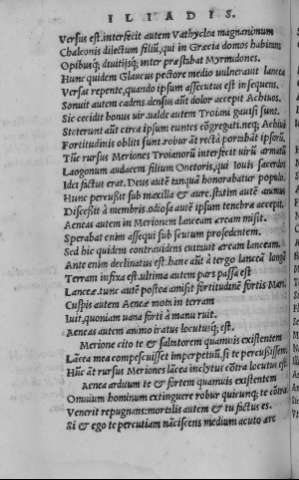 ILIADIS.
Versus est. interfecit autem Vathyclea magnanimum
Chalconis dilectum filiũ, qui in Græcia domos habitans
Opibusq; diuitijsq; inter præstabat Myrmidones.
Hunc quidem Glaucus pectore medio vulnerauit lancea
Versus repente, quando ipsum assecutus est insequens,
Sonuit autem cadens. densus aũt dolor accepit Achiuos,
Sic cecidit bonus uir. ualde autem Troiani gauisi sunt.
Steterunt aũt circa ipsum euntes cõgregati. neq; Achiui
Fortitudinis obliti sunt. robur āt recta portabāt ipsorũ,
Tũc rursus Meriones Troianorũ interfecit uirũ armatũ
Laogonum audacem filium Onetoris, qui Iouis sacerdos
Idei fuctus erat, Deus autē tanquā honorabatur populo.
Hunc percussit sub maxilla & aure. statim autē animus
Discessit à membris. odiosæ autē ipsum tenebræ accepit.
Aeneas autem in Merionem lanceam æream misit.
Sperabat enim assequi sub scutum prosedentem.
Sed hic quidem contrauidens euitauit æream lanceam.
Ante enim declinatus est. hanc aũt à tergo lanceā longā
Terram infixa est. ultima autem pars passa est
Lanceæ. tunc autē postea amisit fortitudinē fortis Mars
Cuspis autem Aeneæ mota in terram
Iuit, quoniam uana forti à manu ruit.
Aeneas autem animo iratus locutusq; est.
Merione cito te & saltatorem quamuis existentem
Lācea mea compescuisset imperpetuũ, si te percussissem.
Hũc āt rursus Meriones lācea inclytus cõtra locutus est.
Aenea arduum te & fortem quamuis existentem
Omnium hominum extinguere robur quicunq; te cõtra
Venerit repugnans: mortalis autem & tu fuctus es.
Si & ego te percutiam nāciscens medium acuto ære